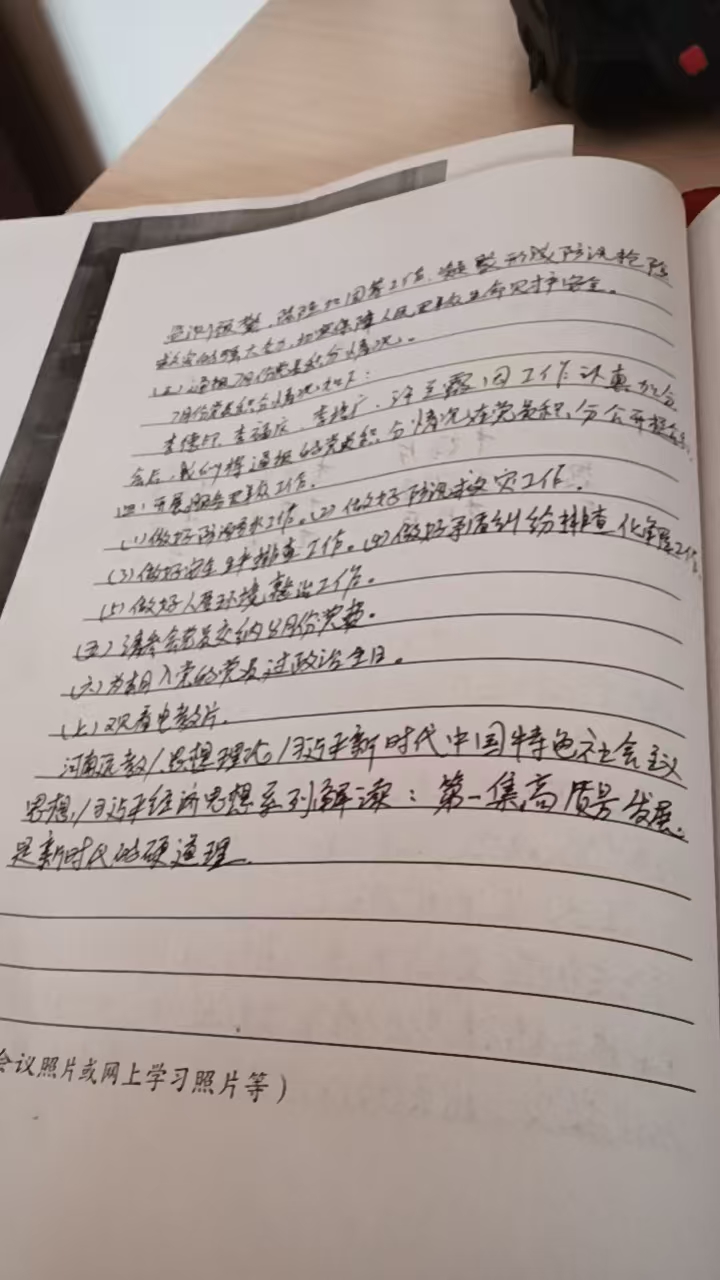 凝聚形成防汛抢险
救灾的强大合力,切实保障人民群众生命财产安全。
(三)通报7月份党员积分情况。
7月份党员积分情况如下:
李德印、李福庆、李培广、许兰霞因工作认真加分
会后,我们将通报的党员积分情况在党员积分公开栏
(四)开展服务群众工作。
(1)做好防汛排水工作。(2)做好防汛救灾工作。
(3)做好安全生产排查工作。(4)做好矛盾纠纷排查化解工作。
(5)做好人居环境整治工作。
(五)请参会党员交纳8月份党费。
(六)为本月入党的党员过政治生日。
(七)观看电教片。
河南远教/思想理论/习近平新时代中国特色社会主义
思想/习近平经济思想系列解读:第一集高质量发展
是新时代的硬道理
会议照片或网上学习照片等)